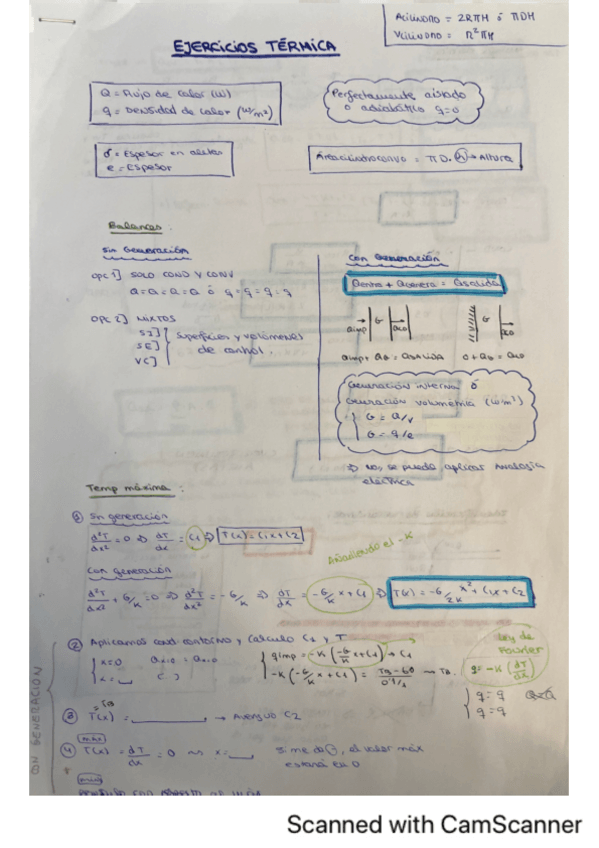 Acilindro = 2RπH ó πDH
Vcilindro = R²πH
EJERCICIOS TÉRMICA
Q = Flujo de calor (W)
q = Densidad de calor (W/m²)
Perfectamente aislado
o adiabático q=0
σ = Espesor en aletas
e = Espesor
= πD. → Altura
Balances:
Sin Generación
opc 1] SOLO COND Y CONV
Q=Q=Q=Q ó q=q=q=q
opc 2] MIXTOS
SI]
SE]
VC]
Superficies y volúmenes
de control.
Con Generación
= Qsalida
G
G
Generación interna ó
Generación volumétrica (W/m³)
G = Q/V
G = q/e
⇒ No, se puede aplicar Analogía
eléctrica
Temp máxima:
① Sin generación
d²T/dx² = 0 ⇒ dT/dx = C1 ⇒ T(x) = C1x+C2
Añadiendo el -K
Con Generación
d²T/dx² + G/K = 0 ⇒ d²T/dx² = -G/K ⇒ dT/dx = -G/K x + C1 ⇒ T(x) = -G/2K x² + C1x + C2
② Aplicamos cond. contorno y calculo C1 y T
x=0
x=__
qimp = -K(-G/K x + C1) → C1
-K(-G/K x + C1) =
Ley de
Fourier
q = -K (dT/dx)
q = q
q = q
③ T(x) = ________ → Averiguo C2
máx
④ T(x) = dT/dx = 0 x=__ Si me da ⊖, el valor máx
estará en 0
mín
CON GENERACIÓN
Scanned with CamScanner